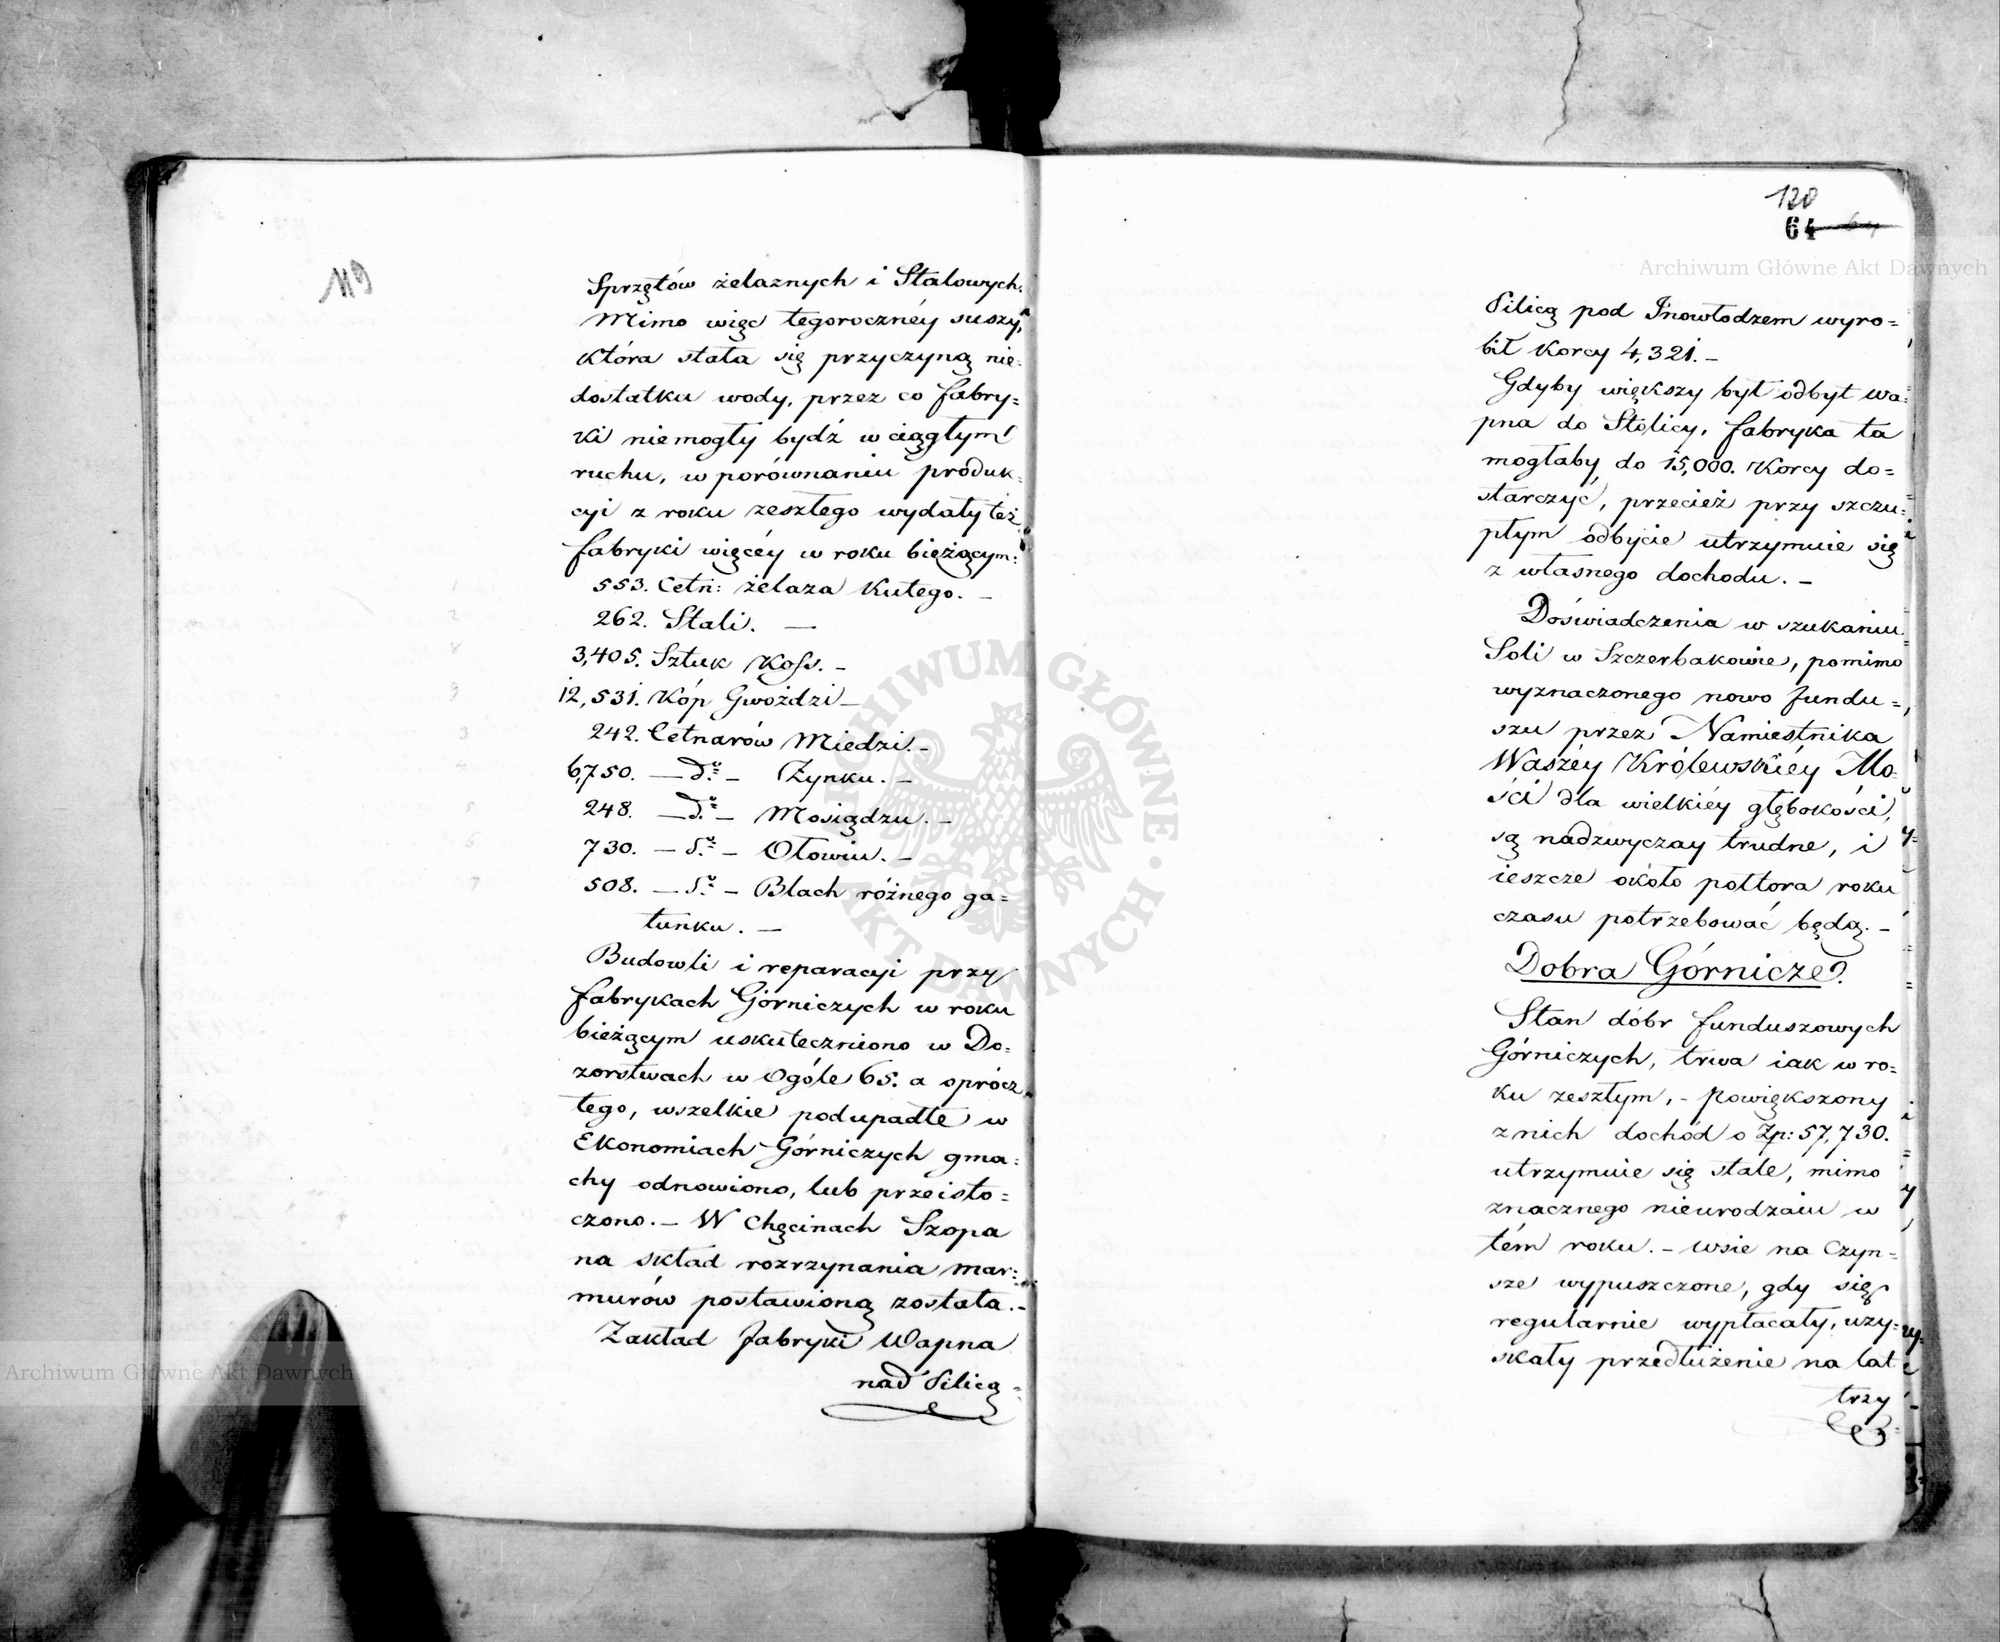 119
Sprzętów żelaznych i Stalowych.
Mimo więc tegorocznéy suszy,
która stała się przyczyną nie-
dostatku wody, przez co fabry=
ki niemogły bydź w ciągłym
ruchu, w porównaniu produk-
cyi z roku zeszłego wydały też
fabryki więcéy w roku bieżącym:
553. Cetn: żelaza Kutego. –
262. Stali. —
3,405. Sztuk Koss. –
12,531. Kóp Gwoździ –
242. Cetnarów Miedzi. –
6,750. — do – Zynku. –
248. — do – Mosiądzu. –
730. — do – Ołowiu. –
508. — do – Blach różnego ga=
tunku. —
Budowli i reparacyi przy
fabrykach Górniczych w roku
bieżącym uskuteczniono w Do=
zorstwach w Ogóle 65. a oprócz
tego, wszelkie podupadłe w
Ekonomiach Górniczych gma=
chy odnowiono, lub przeisto=
czono. – W Chęcinach Szopa
na skład rozrzynania mar=
murów postawioną została. –
Zakład fabryki Wapna
nad Pilicą
120
64
Pilicą pod Inowłodzem wyro=
bił Korcy 4,321. –
Gdyby większy był odbyt wa=
pna do Stolicy, fabryka ta
mogłaby do 15,000. Korcy do=
starczyć, przecież przy szczu=
płym odbycie utrzymuie się
z własnego dochodu. –
Doświadczenia w szukaniu
Soli w Szczerbakowie, pomimo
wyznaczonego nowo fundu=
szu przez Namiestnika
Waszéy Królewskiéy Mo=
ści dla wielkiéy głębokości,
są nadzwyczay trudne, i
ieszcze około półtora roku
czasu potrzebować będą. –
Dobra Górnicze.
Stan dóbr funduszowych
Górniczych, trwa iak w ro=
ku zeszłym, – powiększony
z nich dochód o Zp: 57,730.
utrzymuie się stale, mimo
znacznego nieurodzaiu w
tém roku. – Wsie na Czyn=
sze wypuszczone, gdy się
regularnie wypłacały, uzy=
skały przedłużenie na lat
trzy
Archiwum Główne Akt Dawnych
Archiwum Główne Akt Dawnych
ARCHIWUM GŁÓWNE AKT DAWNYCH